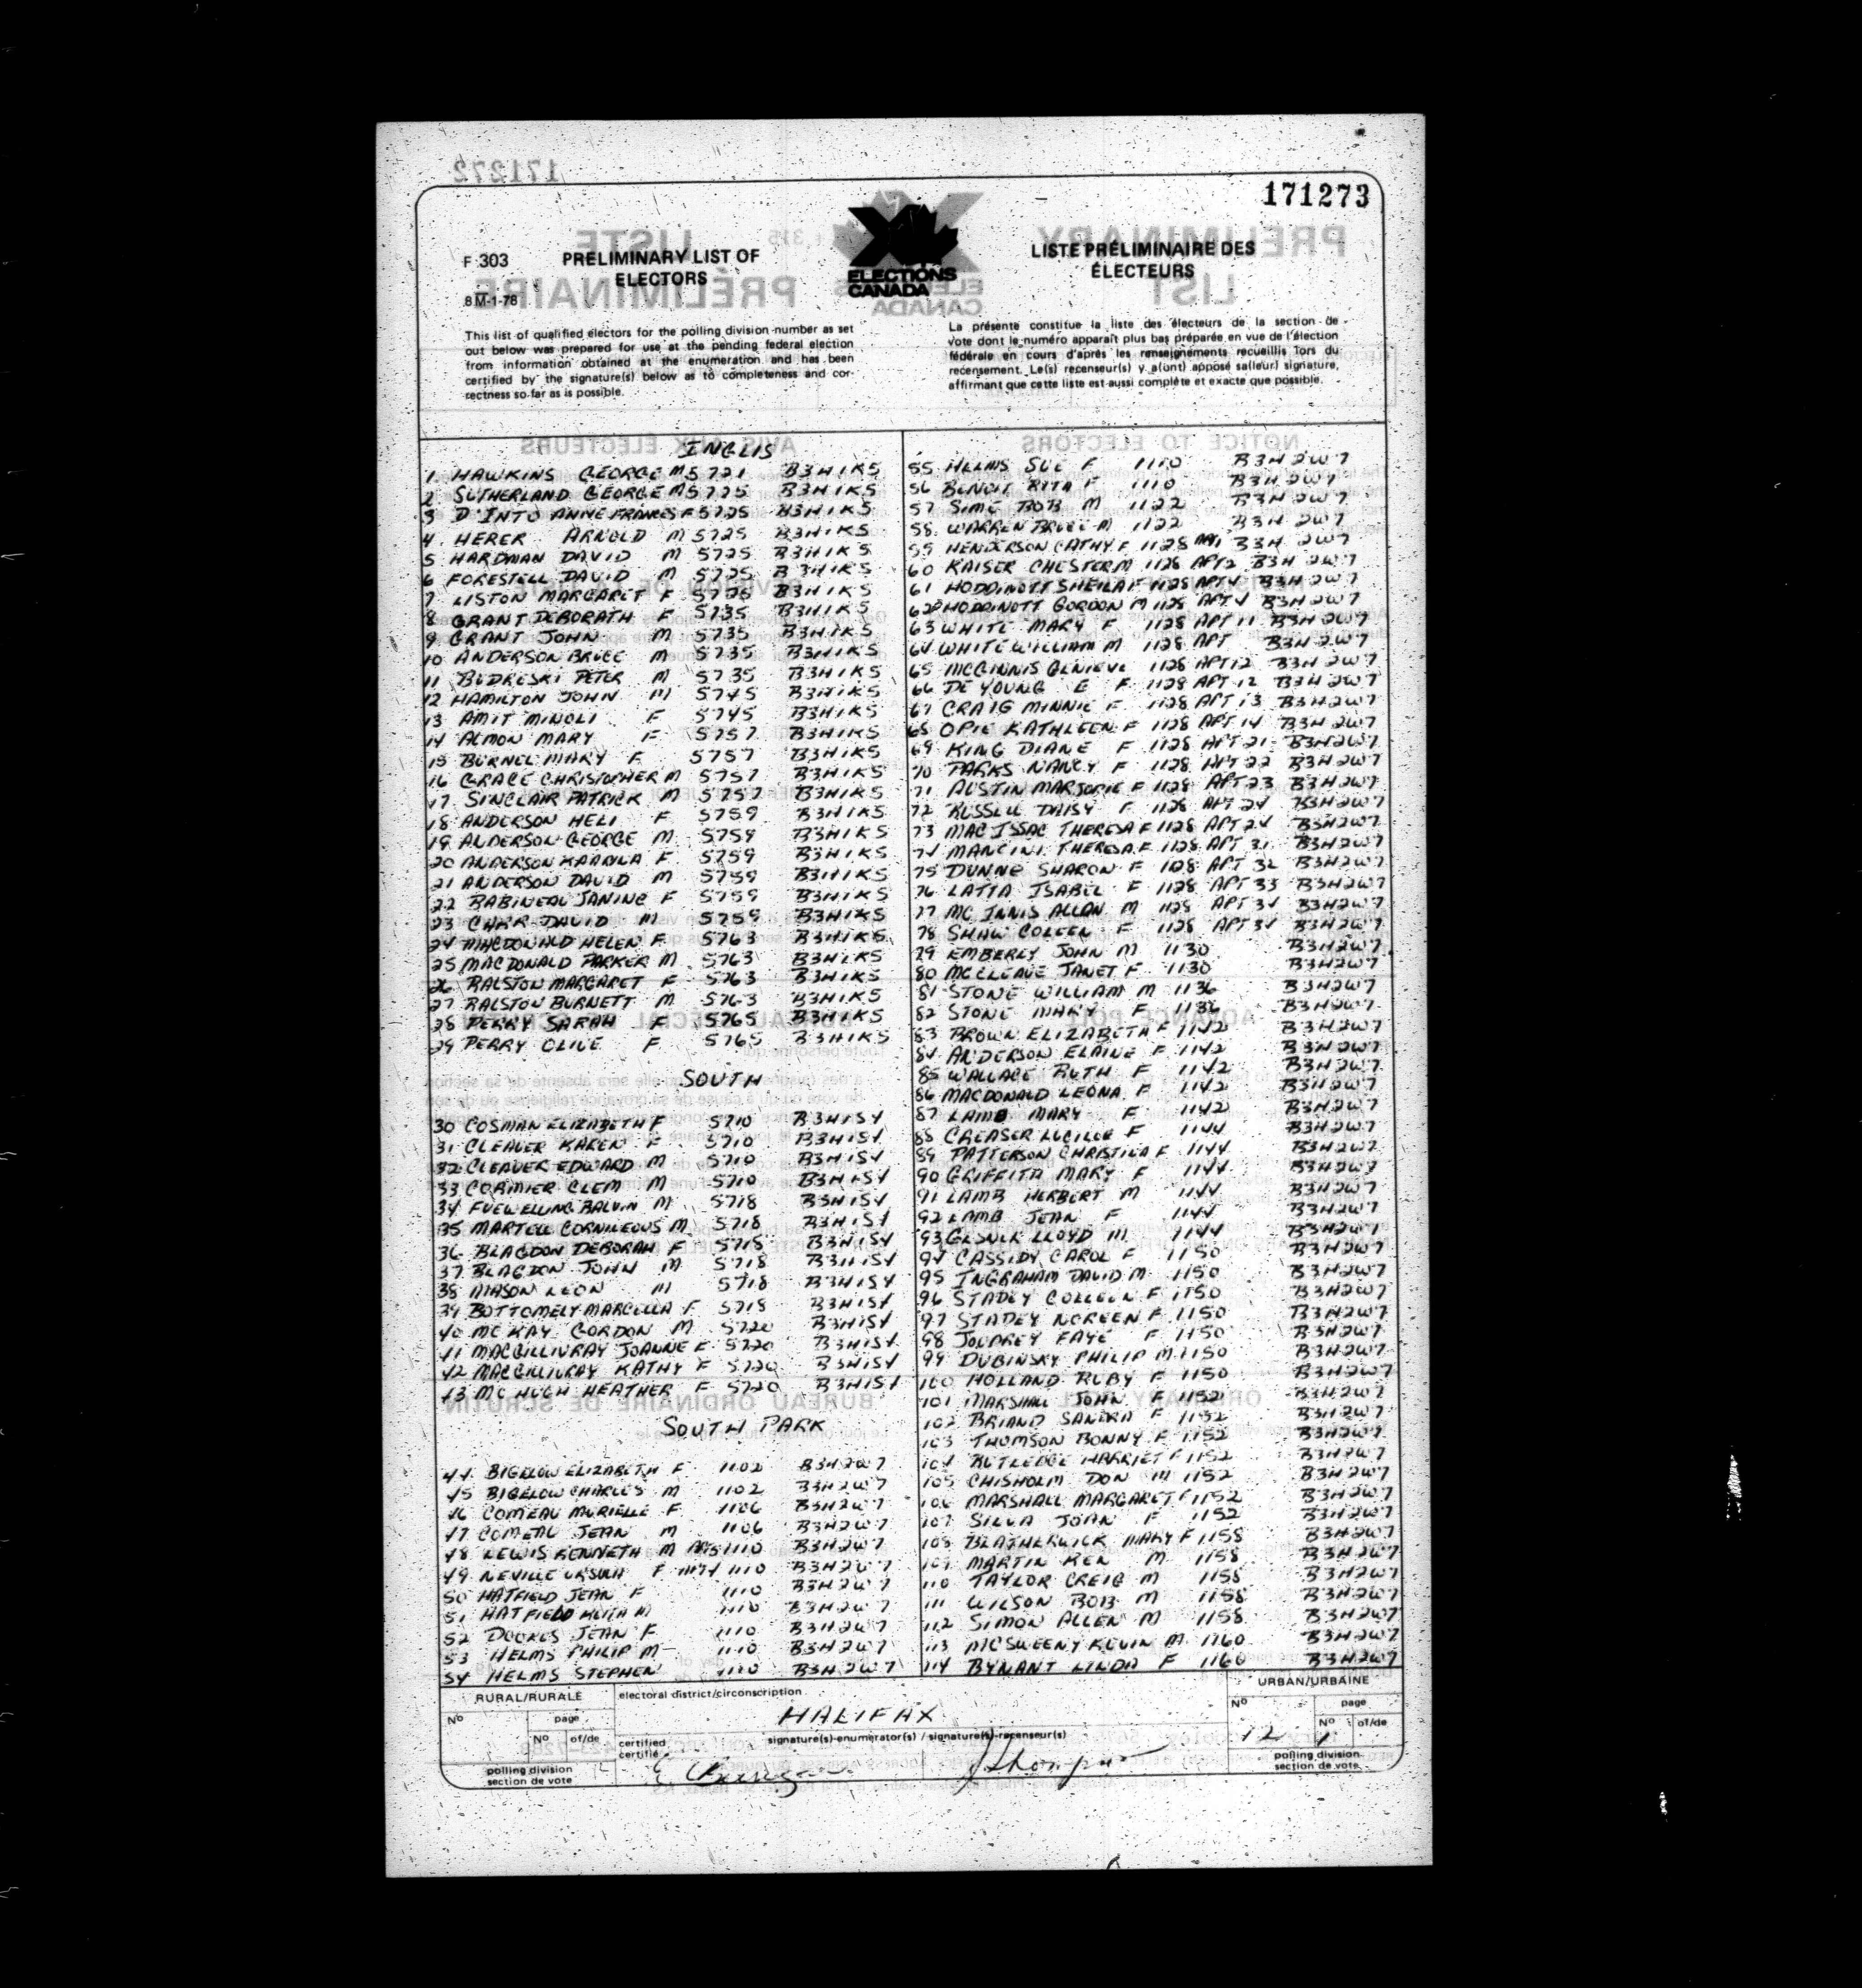 171273
F 303
PRELIMINARY LIST OF
ELECTORS
8 M-1-78
ELECTIONS
CANADA
LISTE PRÉLIMINAIRE DES
ÉLECTEURS
This list of qualified electors for the polling division number as set
out below was prepared for use at the pending federal election
from information obtained at the enumeration and has been
certified by the signature(s) below as to completeness and cor-
rectness so far as is possible.
La présente constitue la liste des électeurs de la section de
vote dont le numéro apparaît plus bas préparée en vue de l'élection
fédérale en cours d'après les renseignements recueillis lors du
recensement. Le(s) recenseur(s) y a(ont) apposé sa(leur) signature,
affirmant que cette liste est aussi complète et exacte que possible.
INGLIS
1 HAWKINS GEORGE M 5721 B3H1K5
2 SUTHERLAND GEORGE M 5725 B3H1K5
3 D'INTO ANNE FRANCES F 5725 B3H1K5
4 HERER ARNOLD M 5725 B3H1K5
5 HARDMAN DAVID M 5725 B3H1K5
6 FORESTELL DAVID M 5725 B3H1K5
7 LISTON MARGARET F 5725 B3H1K5
8 GRANT DEBORATH F 5735 B3H1K5
9 GRANT JOHN M 5735 B3H1K5
10 ANDERSON BRUCE M 5735 B3H1K5
11 BUDRESKI PETER M 5735 B3H1K5
12 HAMILTON JOHN M 5745 B3H1K5
13 AMIT MINOLI F 5745 B3H1K5
14 ALMON MARY F 5757 B3H1K5
15 BURNEL MARY F 5757 B3H1K5
16 GRACE CHRISTOPHER M 5757 B3H1K5
17 SINCLAIR PATRICK M 5757 B3H1K5
18 ANDERSON HELI F 5759 B3H1K5
19 ANDERSON GEORGE M 5759 B3H1K5
20 ANDERSON KAARULA F 5759 B3H1K5
21 ANDERSON DAVID M 5759 B3H1K5
22 BABINEAU JANINE F 5759 B3H1K5
23 CHAR DAVID M 5759 B3H1K5
24 MACDONALD HELEN F 5763 B3H1K5
25 MACDONALD PARKER M 5763 B3H1K5
26 RALSTON MARGARET F 5763 B3H1K5
27 RALSTON BURNETT M 5763 B3H1K5
28 PERRY SARAH F 5765 B3H1K5
29 PERRY OLIVE F 5765 B3H1K5
SOUTH
30 COSMAN ELIZABETH F 5710 B3H1S4
31 CLEAVER KAREN F 5710 B3H1S4
32 CLEAVER EDWARD M 5710 B3H1S4
33 CORMIER CLEM M 5710 B3H1S4
34 FUEWELLING BALVIN M 5718 B3H1S4
35 MARTELL CORNILEOUS M 5718 B3H1S4
36 BLAGDON DEBORAH F 5718 B3H1S4
37 BLAGDON JOHN M 5718 B3H1S4
38 MASON LEON M 5718 B3H1S4
39 BOTTOMELY MARCELLA F 5718 B3H1S4
40 MCKAY GORDON M 5720 B3H1S4
41 MACGILLIVRAY JOANNE F 5720 B3H1S4
42 MACGILLIVRAY KATHY F 5720 B3H1S4
43 MCHUGH HEATHER F 5720 B3H1S4
SOUTH PARK
44 BIGELOW ELIZABETH F 1102 B3H2W7
45 BIGELOW CHARLES M 1102 B3H2W7
46 COMEAU MURIELLE F 1106 B3H2W7
47 COMEAU JEAN M 1106 B3H2W7
48 LEWIS KENNETH M 1110 B3H2W7
49 NEVILLE URSULA F 1110 B3H2W7
50 HATFIELD JEAN F 1110 B3H2W7
51 HATFIELD KEITH M 1110 B3H2W7
52 JEAN F 1110 B3H2W7
53 HELMS PHILIP M 1110 B3H2W7
54 HELMS STEPHEN 1110 B3H2W7
55 HELMS SUE F 1110 B3H2W7
56 BENOIT RITA F 1110 B3H2W7
57 SIME BOB M 1122 B3H2W7
58 WARREN BRUCE M 1122 B3H2W7
59 HENDERSON CATHY F 1128 B3H2W7
60 KAISER CHESTER M 1128 APT 2 B3H2W7
61 HODDINOTT SHEILA F 1128 APT 4 B3H2W7
62 HODDINOTT GORDON M 1128 APT 4 B3H2W7
63 WHITE MARY F 1128 APT 11 B3H2W7
64 WHITE WILLIAM M 1128 APT B3H2W7
65 MCGINNIS GENIEVE 1128 APT 12 B3H2W7
66 DE YOUNG E F 1128 APT 12 B3H2W7
67 CRAIG MINNIE F 1128 APT 13 B3H2W7
68 OPIE KATHLEEN F 1128 APT 14 B3H2W7
69 KING DIANE F 1128 APT 21 B3H2W7
70 PARKS NANCY F 1128 APT 22 B3H2W7
71 AUSTIN MARJORIE F 1128 APT 23 B3H2W7
72 RUSSLL DAISY F 1128 APT 24 B3H2W7
73 MAC ISSAC THERESA F 1128 APT 24 B3H2W7
74 MANCINI THERESA F 1128 APT 31 B3H2W7
75 DUNNE SHARON F 1128 APT 32 B3H2W7
76 LATTA ISABEL F 1128 APT 33 B3H2W7
77 MC INNIS ALLAN M 1128 APT 34 B3H2W7
78 SHAW COLEEN F 1128 APT 34 B3H2W7
79 EMBERLY JOHN M 1130 B3H2W7
80 MCCLEAVE JANET F 1130 B3H2W7
81 STONE WILLIAM M 1136 B3H2W7
82 STONE MARY F 1136 B3H2W7
83 BROWN ELIZABETH F 1142 B3H2W7
84 ANDERSON ELAINE F 1142 B3H2W7
85 WALLACE RUTH F 1142 B3H2W7
86 MACDONALD LEONA F 1142 B3H2W7
87 LAMB MARY F 1142 B3H2W7
88 CREASER LUCILLE F 1144 B3H2W7
89 PATTERSON CHRISTINA F 1144 B3H2W7
90 GRIFFITH MARY F 1144 B3H2W7
91 LAMB HERBERT M 1144 B3H2W7
92 LAMB JEAN F 1144 B3H2W7
93 LLOYD M 1144 B3H2W7
94 CASSIDY CAROL F 1150 B3H2W7
95 INGRAHAM DAVID M 1150 B3H2W7
96 STADEY COLLEEN F 1150 B3H2W7
97 STADEY NOREEN F 1150 B3H2W7
98 JOUDREY FAYE F 1150 B3H2W7
99 DUBINSKY PHILIP M 1150 B3H2W7
100 HOLLAND RUBY F 1150 B3H2W7
101 MARSHALL JOHN F 1152 B3H2W7
102 BRIAND SANDRA F 1152 B3H2W7
103 THOMSON BONNY F 1152 B3H2W7
104 RUTLEDGE HARRIET F 1152 B3H2W7
105 CHISHOLM DON M 1152 B3H2W7
106 MARSHALL MARGARET F 1152 B3H2W7
107 SILVA JOAN F 1152 B3H2W7
108 BLATHERWICK MARY F 1158 B3H2W7
109 MARTIN KEN M 1158 B3H2W7
110 TAYLOR CREIG M 1158 B3H2W7
111 WILSON BOB M 1158 B3H2W7
112 SIMON ALLEN M 1158 B3H2W7
113 MCSWEENY KEVIN M 1160 B3H2W7
114 BYNANT LINDA F 1160 B3H2W7
RURAL/RURALE
No
page
No of/de
polling division
section de vote
electoral district/circonscription
HALIFAX
certified
certifié
signature(s)-enumerator(s) / signature(s)-recenseur(s)
URBAN/URBAINE
No
page
No of/de
12 1
polling division
section de vote